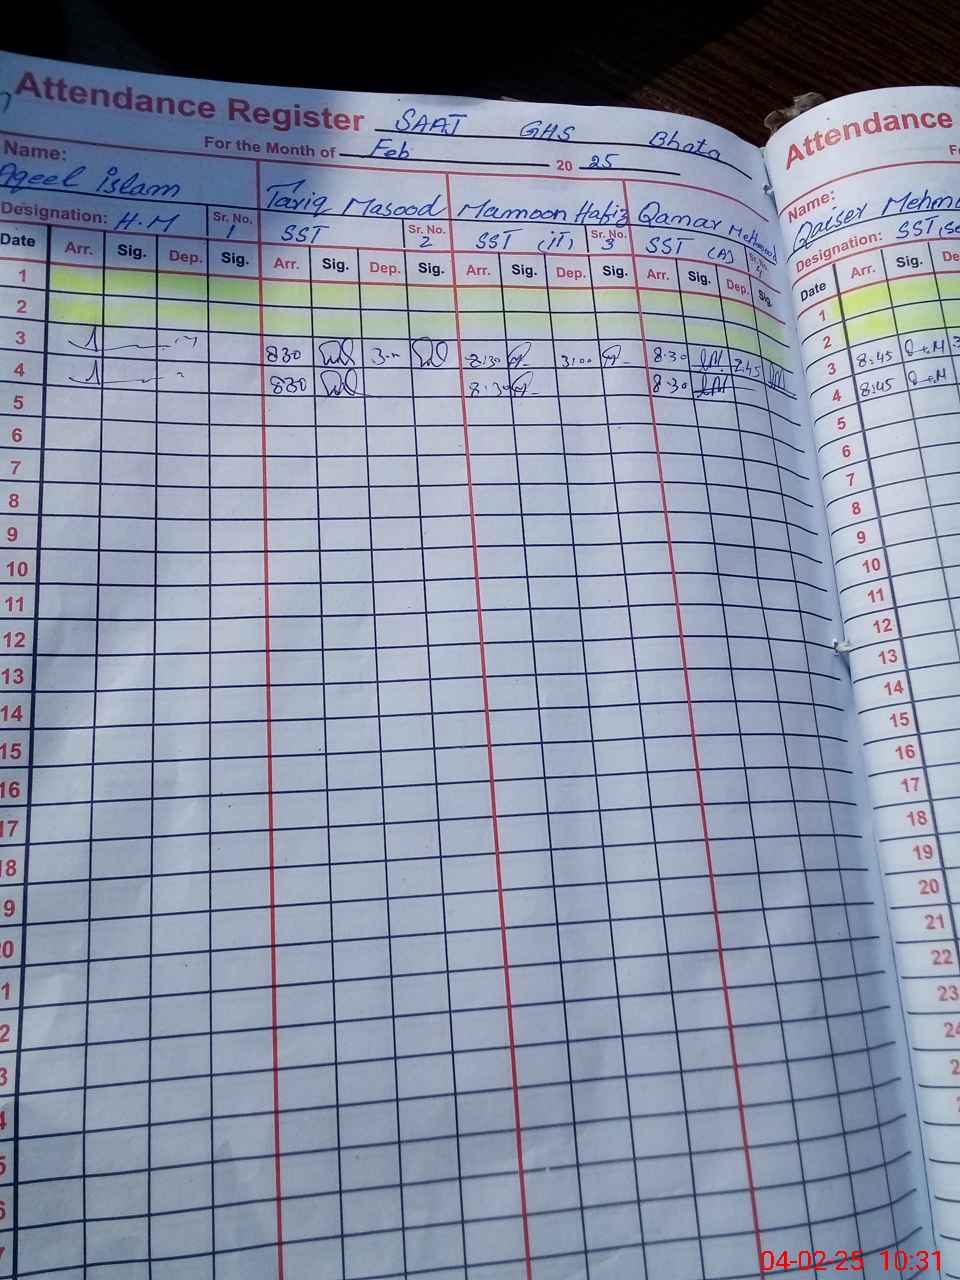 Attendance Register SAAJ GHS Bhata
For the Month of Feb 20 25
Name:
Aqeel islam Tariq Masood Mamoon Hafiz Qamar Mehmood
Designation: H.M Sr. No. 1 SST Sr. No. 2 SST (iT) Sr. No. 3 SST (A) Sr. No.
Date Arr. Sig. Dep. Sig. Arr. Sig. Dep. Sig. Arr. Sig. Dep. Sig. Arr. Sig. Dep. Sig.
1
2
3 830 8:30 3:00 8:30 2.45
4 830 8:30 8:30
5
6
7
8
9
10
11
12
13
14
15
16
17
18
9
0
1
2
3
4
5
6
7
Attendance
Name:
Qaiser Mehmo
Designation: SST(Sc
Date Arr. Sig. De
1
2
3 8:45
4 8:45
5
6
7
8
9
10
11
12
13
14
15
16
17
18
19
20
21
22
23
24
2
04-02-25 10:31